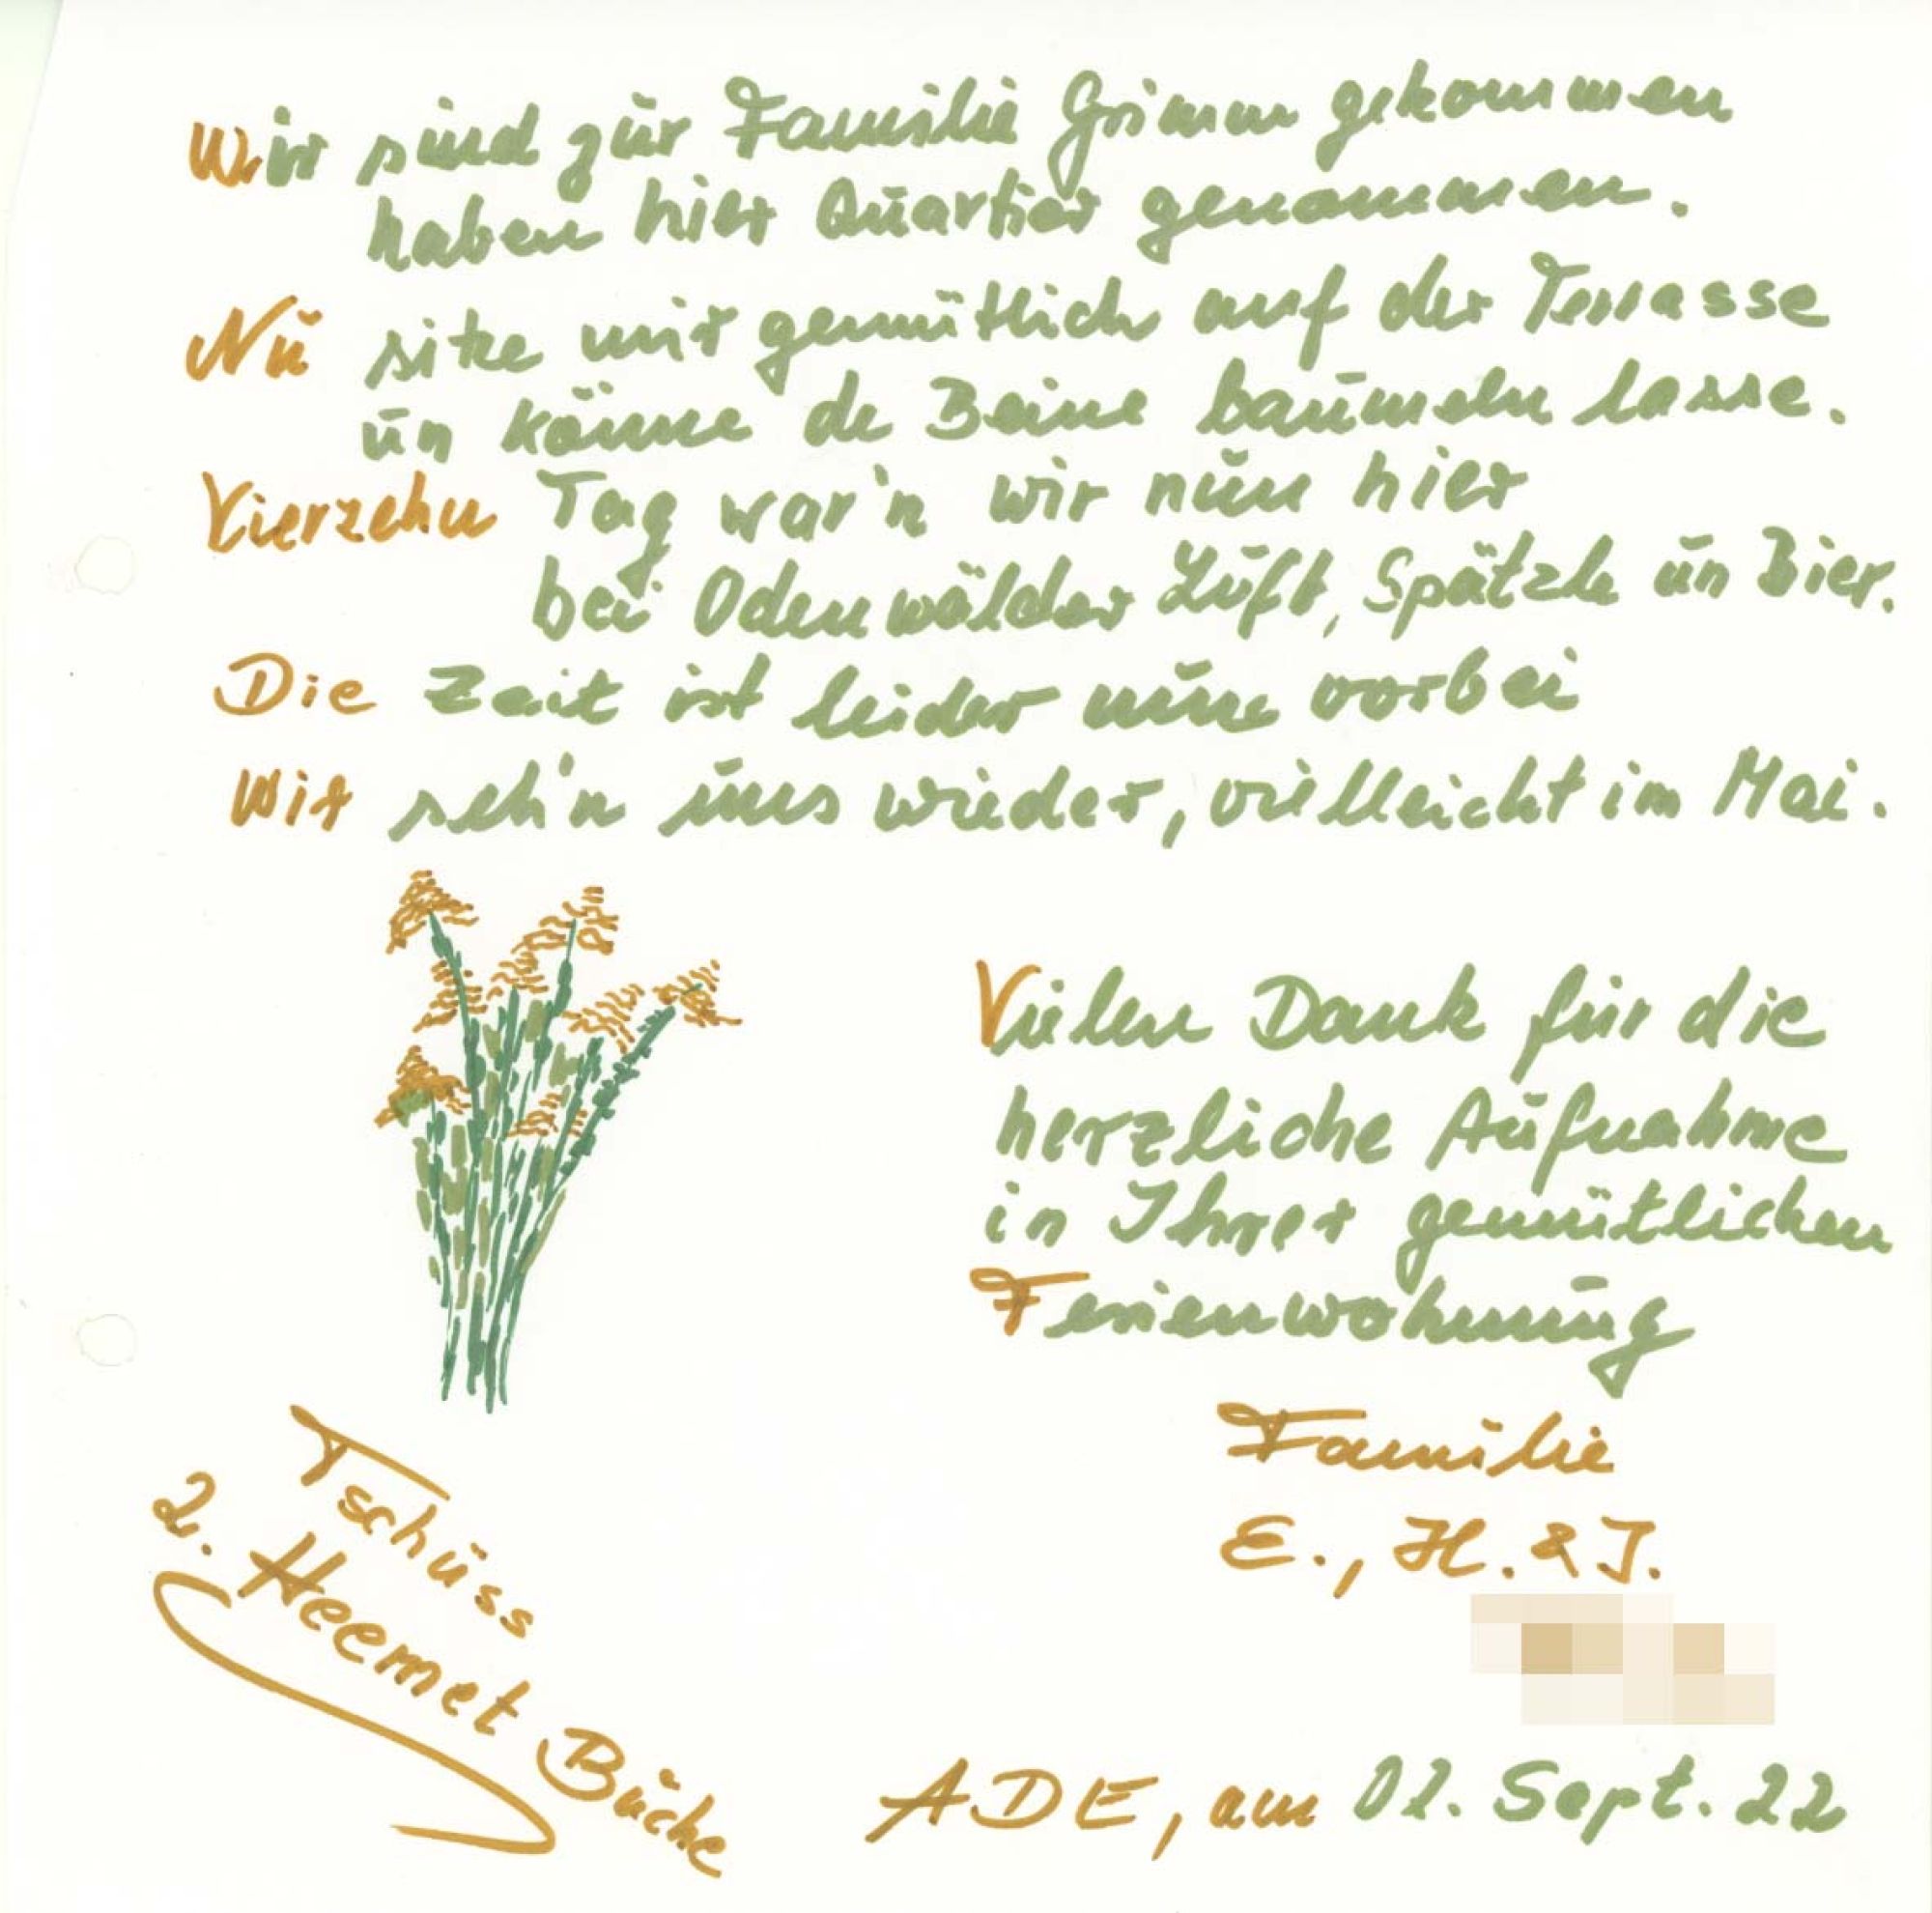 Wir sind zur Familie Grimm gekommen
haben hier Quartier genommen.
Nu sitze mir gemütlich auf der Terrasse
un könne de Beine baumeln lasse.
Vierzehn Tag war'n wir nun hier
bei Odenwälder Luft, Spätzle un Bier.
Die Zeit ist leider nun vorbei
Wir seh'n uns wieder, vielleicht im Mai.
Vielen Dank für die
herzliche Aufnahme
in Ihrer gemütlichen
Ferienwohnung
Familie
E., H. & J.
Tschüss
2. Heemet Buche
ADE, am 02. Sept. 22